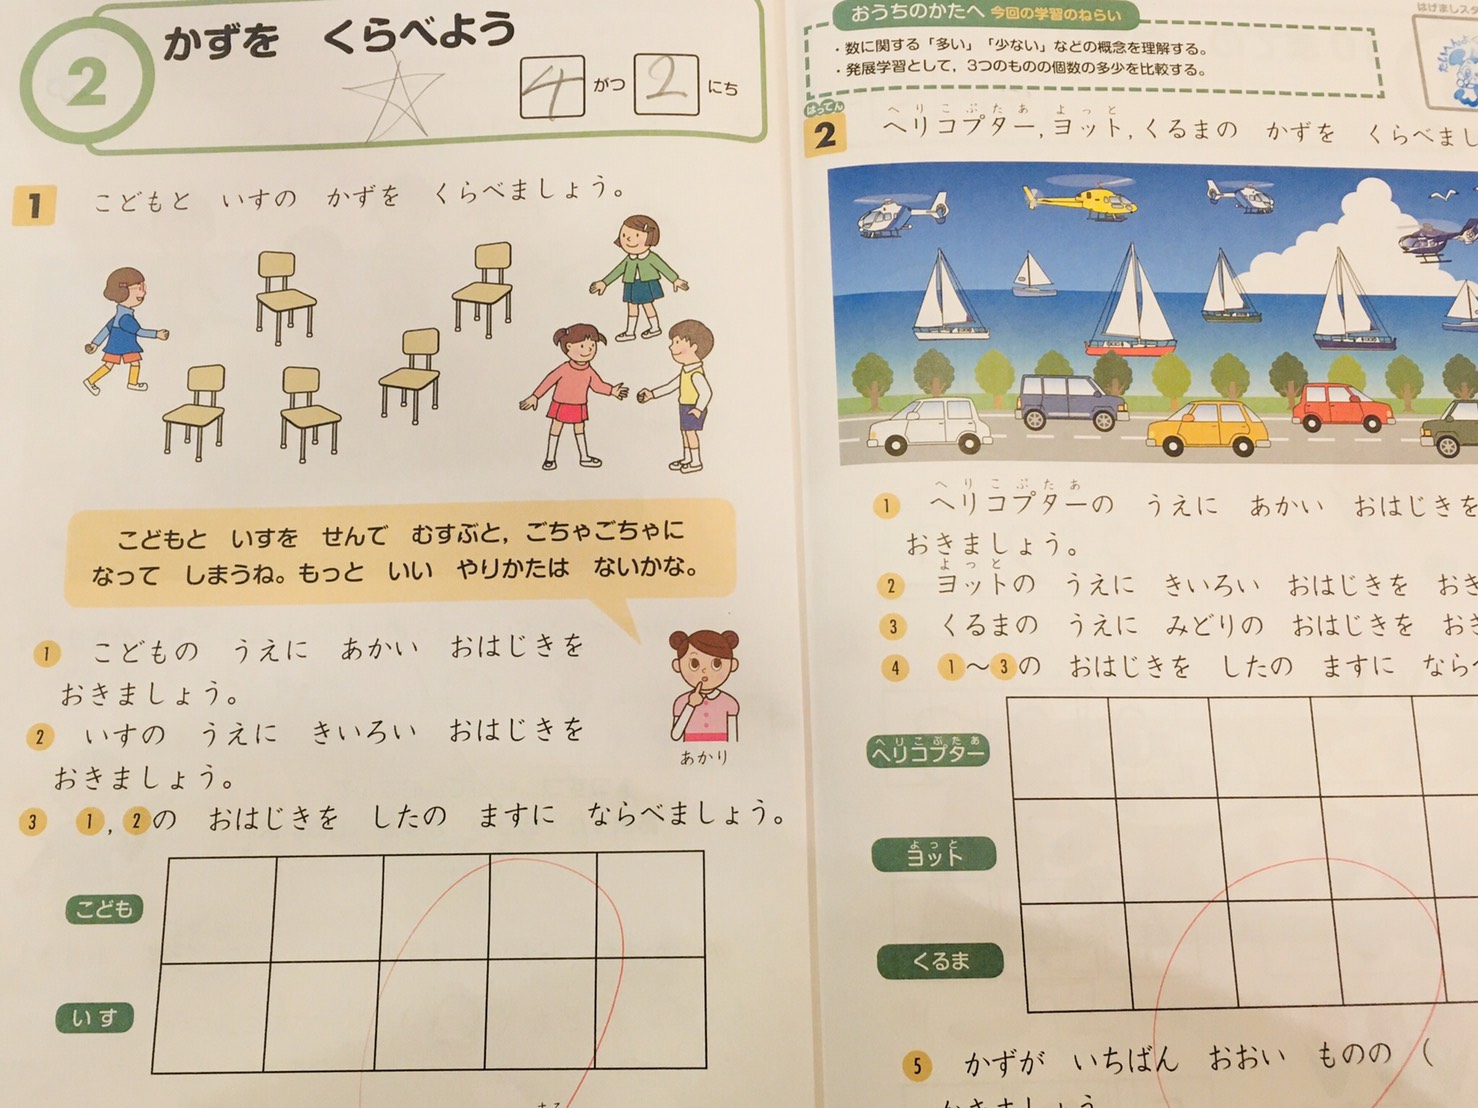 2
かずを くらべよう
4 がつ 2 にち
1 こどもと いすの かずを くらべましょう。
こどもと いすを せんで むすぶと, ごちゃごちゃに
なって しまうね。もっと いい やりかたは ないかな。
あかり
1 こどもの うえに あかい おはじきを
おきましょう。
2 いすの うえに きいろい おはじきを
おきましょう。
3 1, 2の おはじきを したの ますに ならべましょう。
こども
いす
おうちのかたへ 今回の学習のねらい
・数に関する「多い」「少ない」などの概念を理解する。
・発展学習として, 3つのものの個数の多少を比較する。
はってん
へりこぷたあ よっと
2 ヘリコプター, ヨット, くるまの かずを くらべまし
へりこぷたあ
1 ヘリコプターの うえに あかい おはじきを
おきましょう。
よっと
2 ヨットの うえに きいろい おはじきを おき
3 くるまの うえに みどりの おはじきを おき
4 1〜3の おはじきを したの ますに ならべ
へりこぷたあ
ヘリコプター
よっと
ヨット
くるま
5 かずが いちばん おおい ものの (